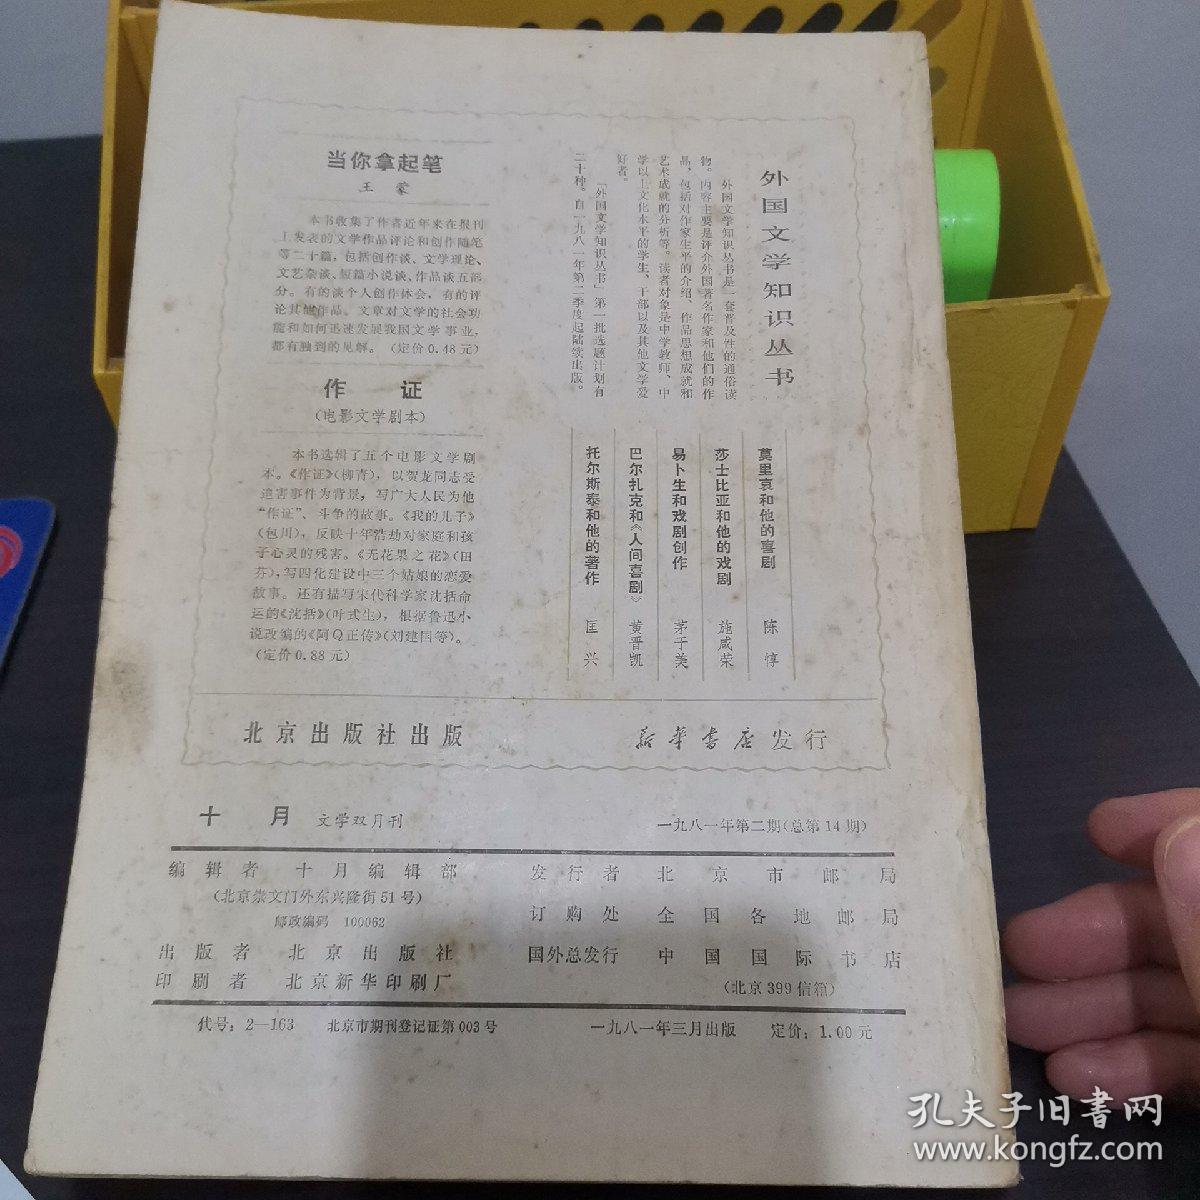 当你拿起笔
王蒙
本书收集了作者近年来在报刊
上发表的文学作品评论和创作随笔
等二十篇，包括创作谈、文学理论、
文艺杂谈、短篇小说谈、作品谈五部
分。有的谈个人创作体会，有的评
论其他作品。文章对文学的社会功
能和如何迅速发展我国文学事业，
都有独到的见解。（定价0.48元）
作 证
（电影文学剧本）
本书选辑了五个电影文学剧
本。《作证》(柳青)，以贺龙同志受
迫害事件为背景，写广大人民为他
“作证”、斗争的故事。《我的儿子》
(包川)，反映十年浩劫对家庭和孩
子心灵的残害。《无花果之花》(田
芬)，写四化建设中三个姑娘的恋爱
故事。还有描写宋代科学家沈括命
运的《沈括》(叶式生)，根据鲁迅小
说改编的《阿Q正传》(刘建国等)。
（定价0.88元）
外国文学知识丛书
外国文学知识丛书是一套普及性的通俗读
物。内容主要是评介外国著名作家和他们的作
品，包括对作家生平的介绍、作品思想成就和
艺术成就的分析等。读者对象是中学教师、中
学以上文化水平的学生、干部以及其他文学爱
好者。
「外国文学知识丛书」第一批选题计划有
二十种。自一九八一年第二季度起陆续出版。
莫里哀和他的喜剧 陈惇
莎士比亚和他的戏剧 施咸荣
易卜生和戏剧创作 茅于美
巴尔扎克和《人间喜剧》 黄晋凯
托尔斯泰和他的著作 匡兴
北京出版社出版 新华书店发行
十 月 文学双月刊 一九八一年第二期(总第14期)
编辑者 十月编辑部 发行者 北京市邮局
(北京崇文门外东兴隆街51号)
订购处 全国各地邮局
邮政编码 100062
出版者 北京出版社 国外总发行 中国国际书店
印刷者 北京新华印刷厂 (北京399信箱)
代号：2—163 北京市期刊登记证第003号 一九八一年三月出版 定价：1.00元
孔夫子旧书网
www.kongfz.com